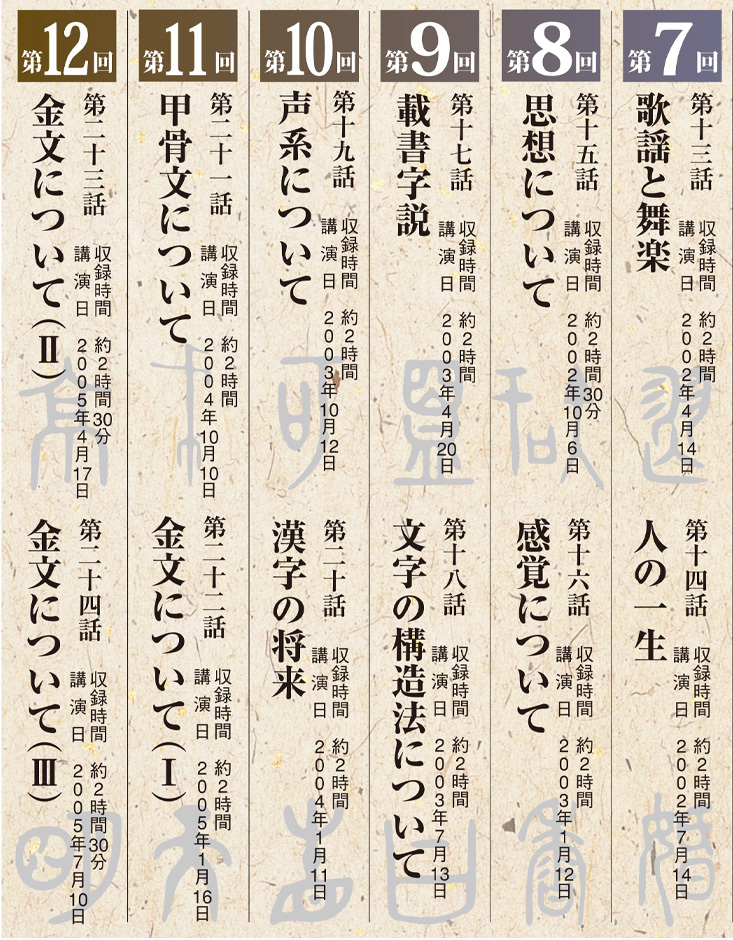 第7回
第十三話
歌謡と舞楽
収録時間 約2時間
講演日 2002年4月14日
第十四話
人の一生
収録時間 約2時間
講演日 2002年7月14日
第8回
第十五話
思想について
収録時間 約2時間30分
講演日 2002年10月6日
第十六話
感覚について
収録時間 約2時間
講演日 2003年1月12日
第9回
第十七話
載書字説
収録時間 約2時間
講演日 2003年4月20日
第十八話
文字の構造法について
収録時間 約2時間
講演日 2003年7月13日
第10回
第十九話
声系について
収録時間 約2時間
講演日 2003年10月12日
第二十話
漢字の将来
収録時間 約2時間
講演日 2004年1月11日
第11回
第二十一話
甲骨文について
収録時間 約2時間
講演日 2004年10月10日
第二十二話
金文について(Ⅰ)
収録時間 約2時間
講演日 2005年1月16日
第12回
第二十三話
金文について(Ⅱ)
収録時間 約2時間30分
講演日 2005年4月17日
第二十四話
金文について(Ⅲ)
収録時間 約2時間30分
講演日 2005年7月10日